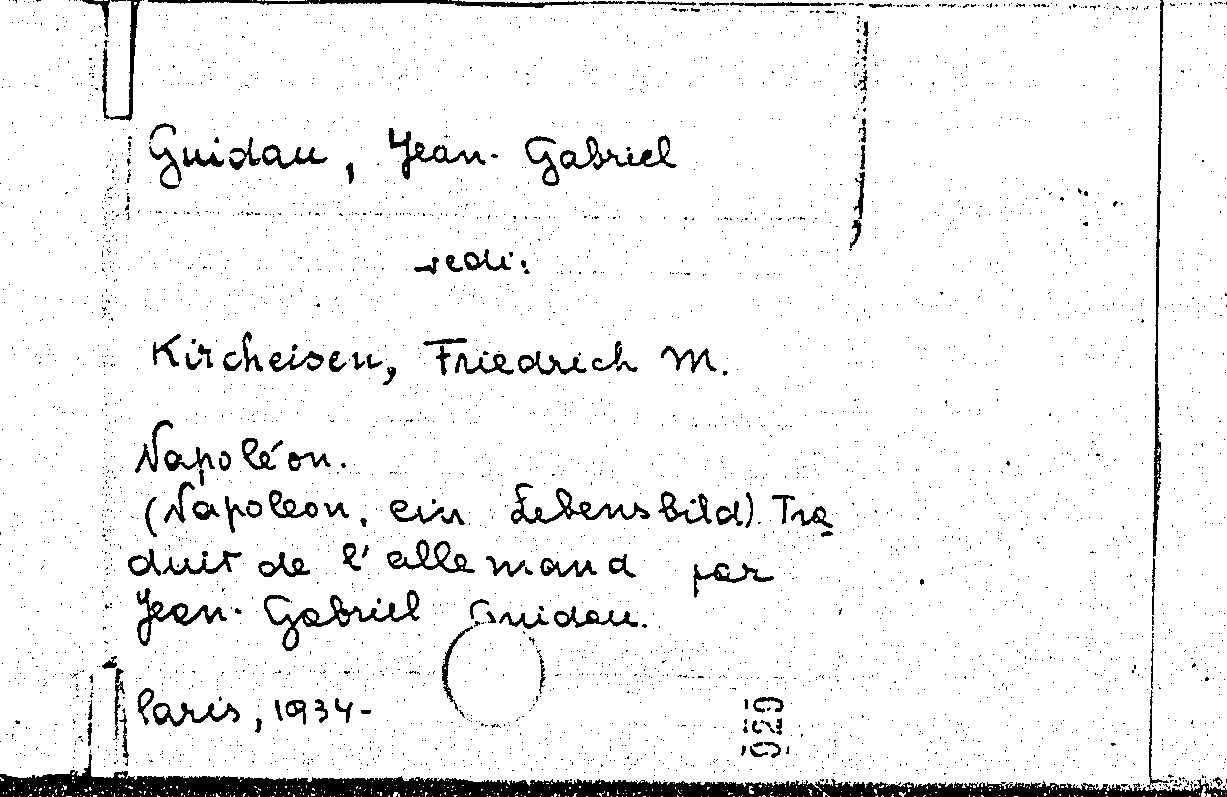 Guidau, Jean-Gabriel
vedi:
Kircheisen, Friedrich M.
Napoléon.
(Napoleon, ein Lebensbild). Tra
duit de l'allemand par
Jean-Gabriel Guidau.
Paris, 1934-
929